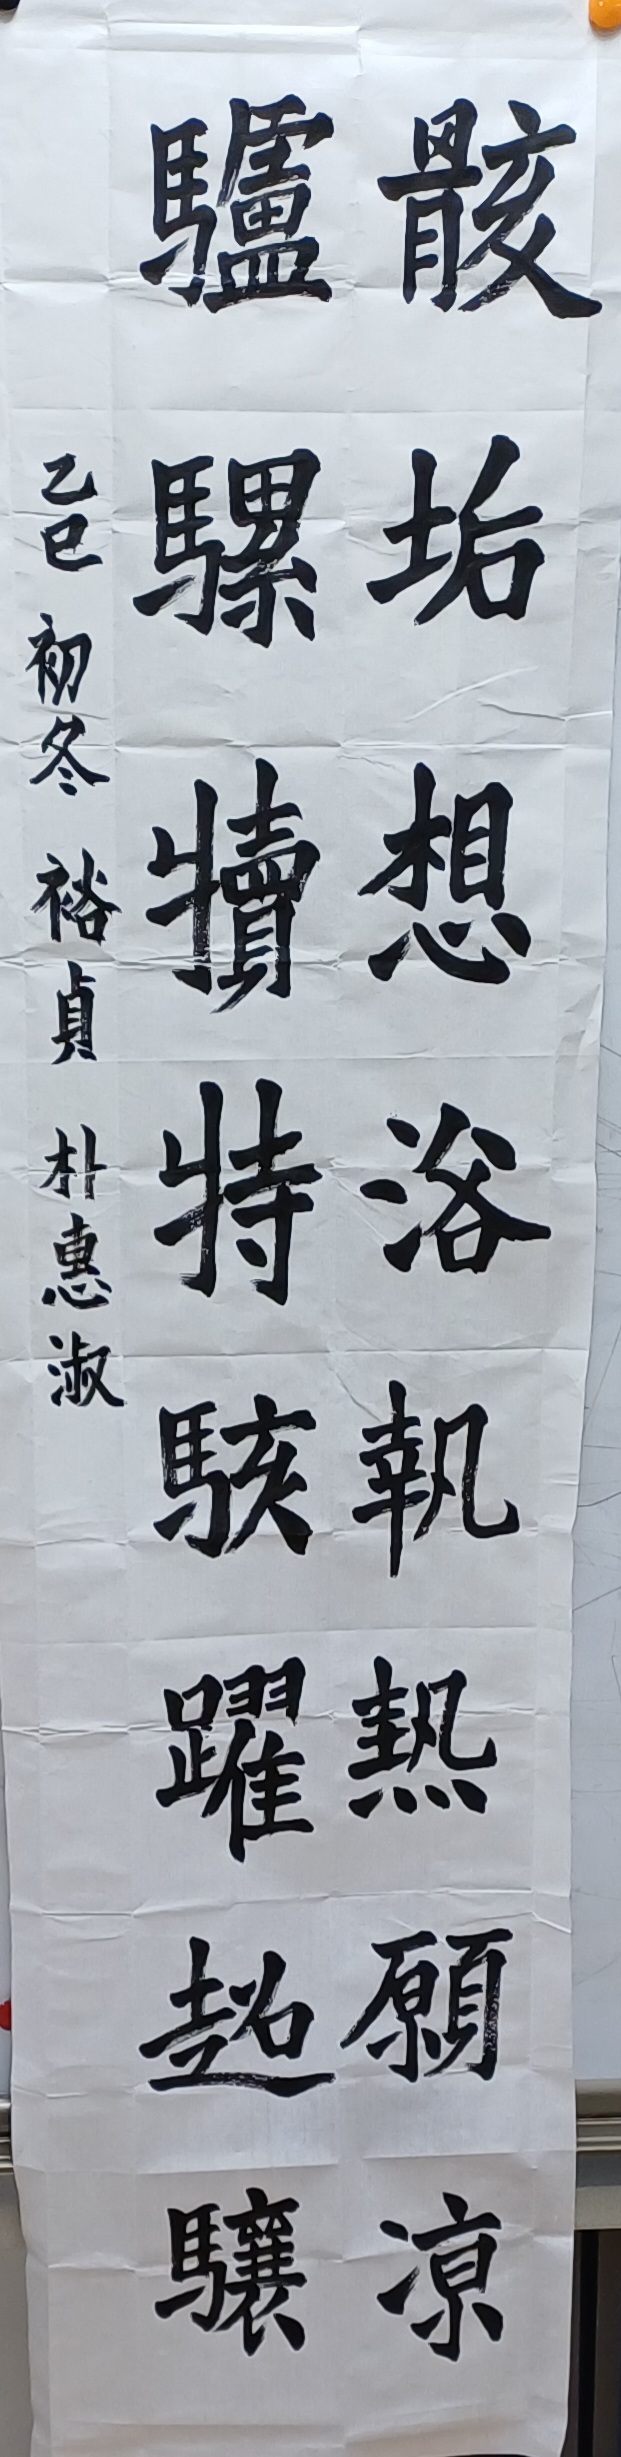 骸垢想浴執熱願凉
驢騾犢特駭躍超驤
乙巳 初冬 裕貞 朴惠淑